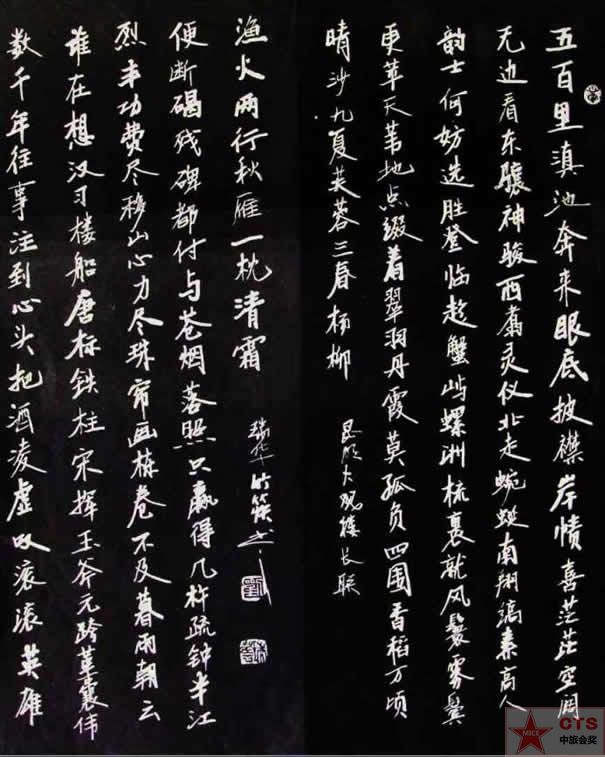 五百里滇池奔来眼底披襟岸帻喜茫茫空阔
无边看东骧神骏西翥灵仪北走蜿蜒南翔缟素高人
韵士何妨选胜登临趁蟹屿螺洲梳裹就风鬟雾鬓
更苹天苇地点缀着翠羽丹霞莫孤负四围香稻万顷
晴沙九夏芙蓉三春杨柳
昆明大观楼长联
数千年往事注到心头把酒凌虚叹滚滚英雄
谁在想汉习楼船唐标铁柱宋挥玉斧元跨革囊伟
烈丰功费尽移山心力尽珠帘画栋卷不及暮雨朝云
便断碣残碑都付与苍烟落照只赢得几杵疏钟半江
渔火两行秋雁一枕清霜
瑞华
MICE
CTS
中旅会奖